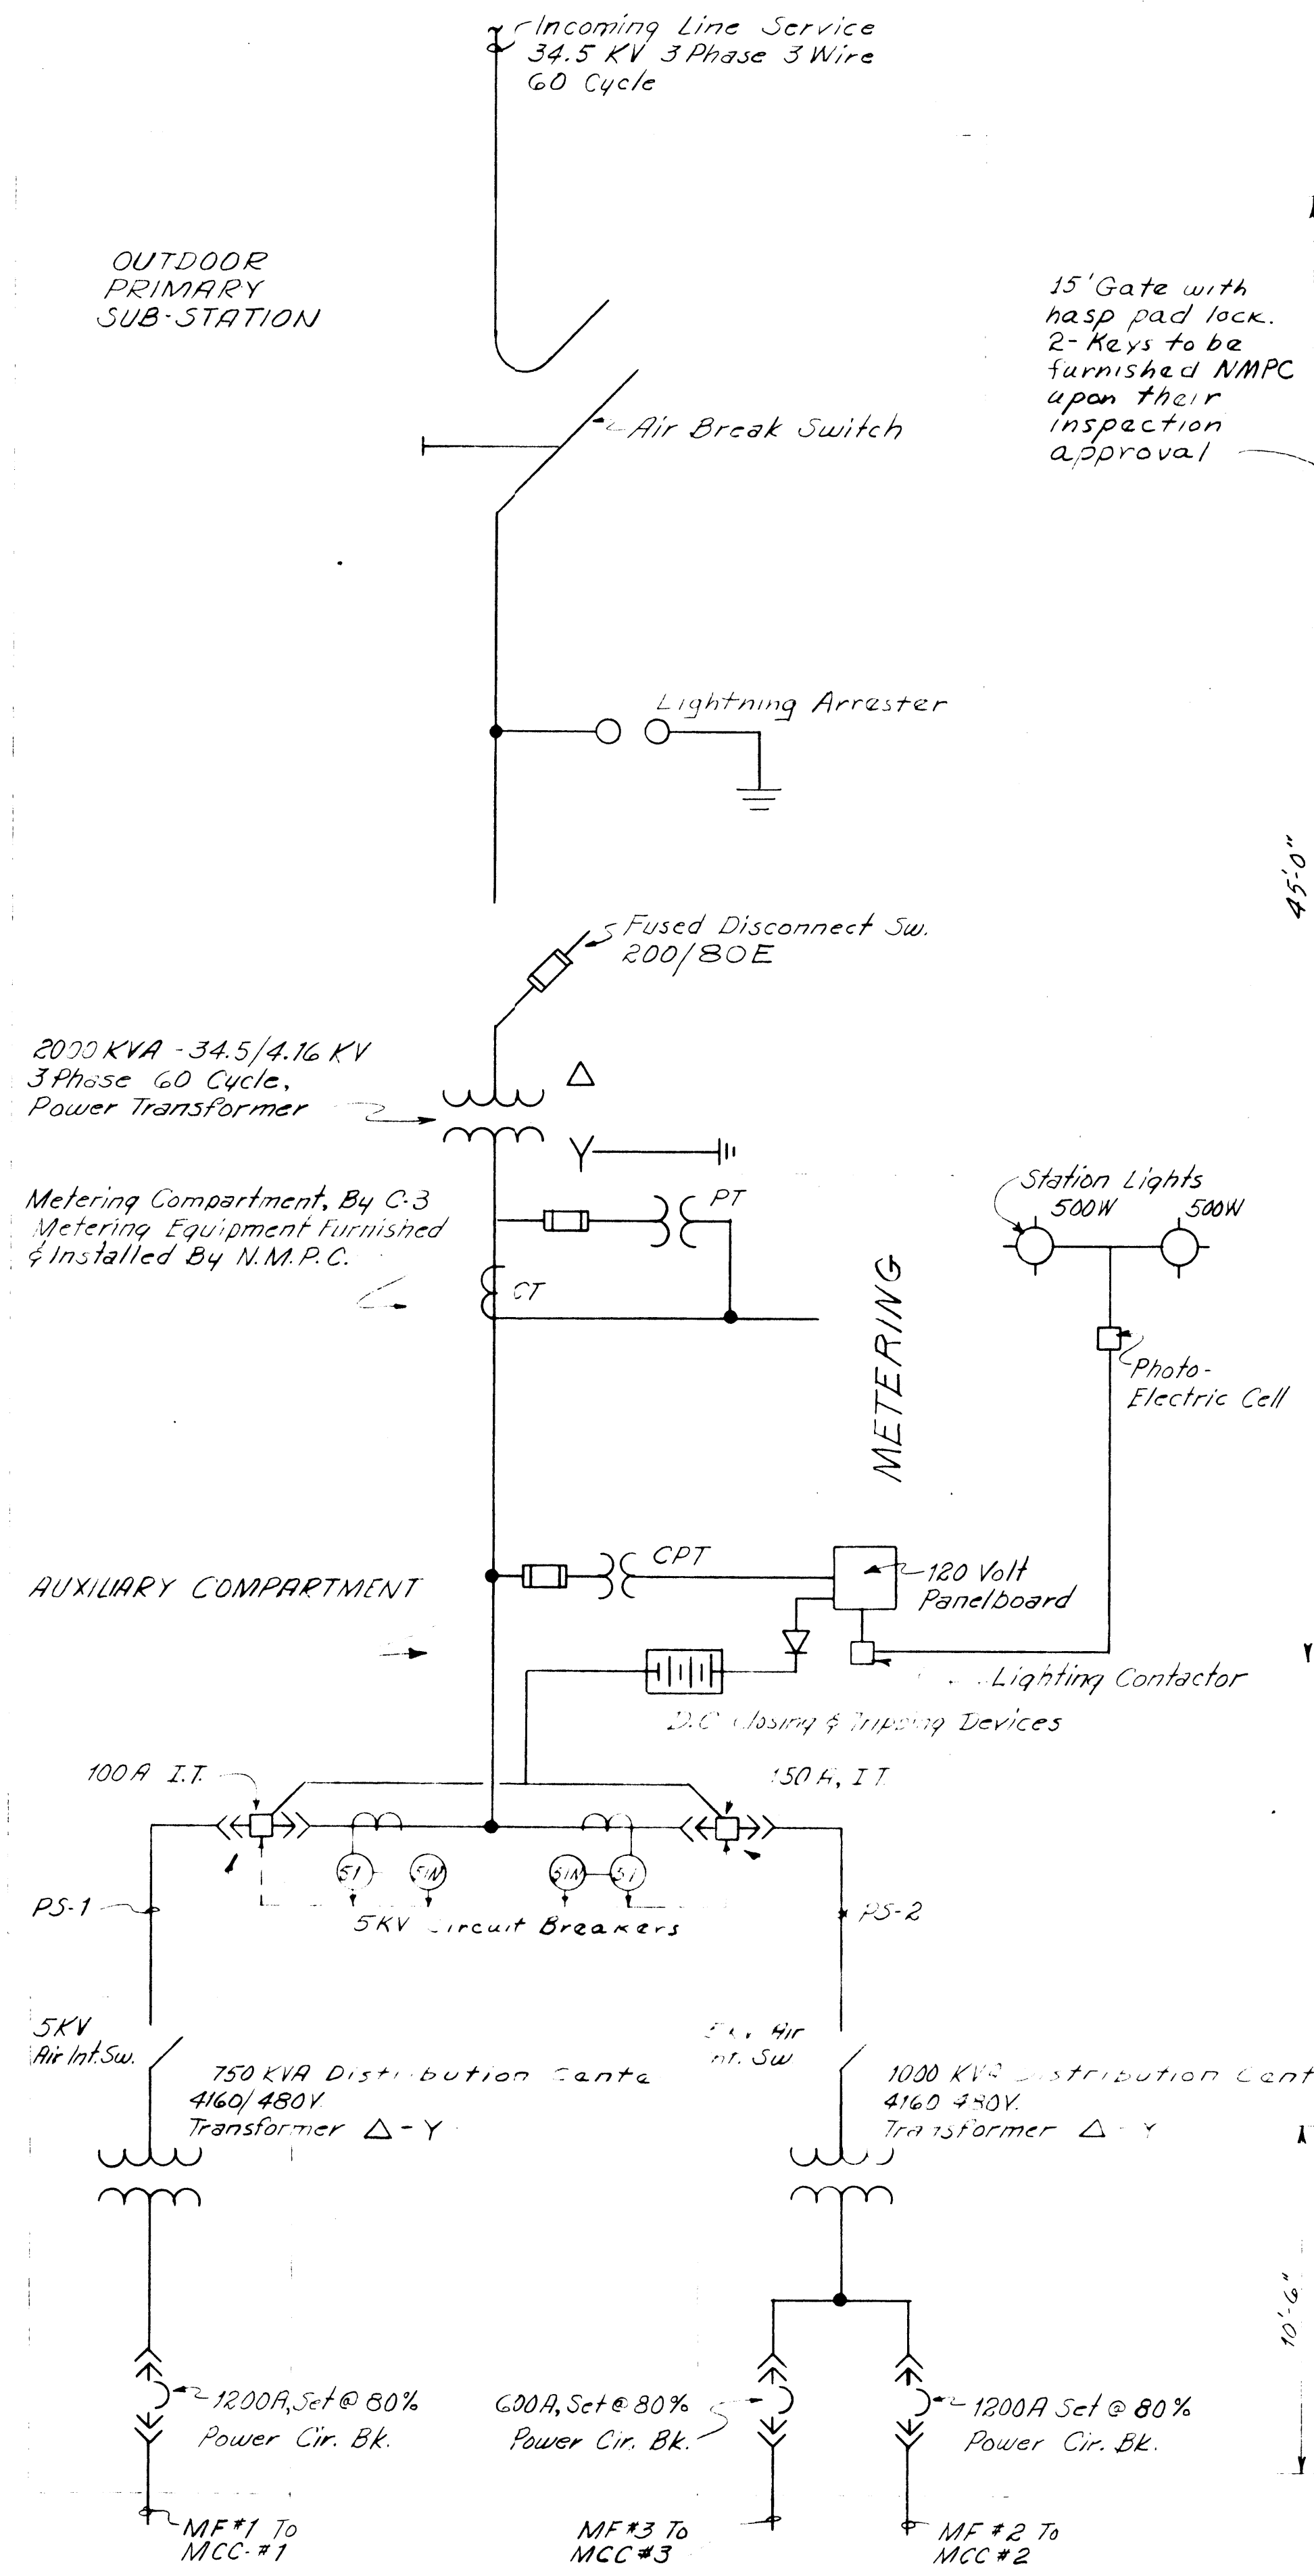 Incoming Line Service
34.5 KV 3 Phase 3 Wire
60 Cycle
OUTDOOR
PRIMARY
SUB-STATION
15' Gate with
hasp pad lock.
2-Keys to be
furnished NMPC
upon their
inspection
approval
Air Break Switch
Lightning Arrester
45'-0"
Fused Disconnect Sw.
200/80E
2000 KVA - 34.5/4.16 KV
3 Phase 60 Cycle,
Power Transformer
Δ
Y
Metering Compartment, By C-3
Metering Equipment Furnished
& Installed By N.M.P.C.
PT
CT
METERING
Station Lights
500W 500W
Photo-
Electric Cell
AUXILIARY COMPARTMENT
CPT
120 Volt
Panelboard
Lighting Contactor
D.C Closing & Tripping Devices
100A I.T.
150A, I.T.
51 51N 51N 51
5KV Circuit Breakers
PS-1
PS-2
5KV
Air Int. Sw.
750 KVA Distribution Cente
4160/480V.
Transformer Δ - Y
5KV Air
Int. Sw
1000 KVA Distribution Cent
4160 480V.
Transformer Δ - Y
10'-6"
1200A, Set @ 80%
Power Cir. Bk.
600A, Set @ 80%
Power Cir. Bk.
1200A Set @ 80%
Power Cir. Bk.
MF #1 To
MCC-#1
MF #3 To
MCC #3
MF #2 To
MCC #2